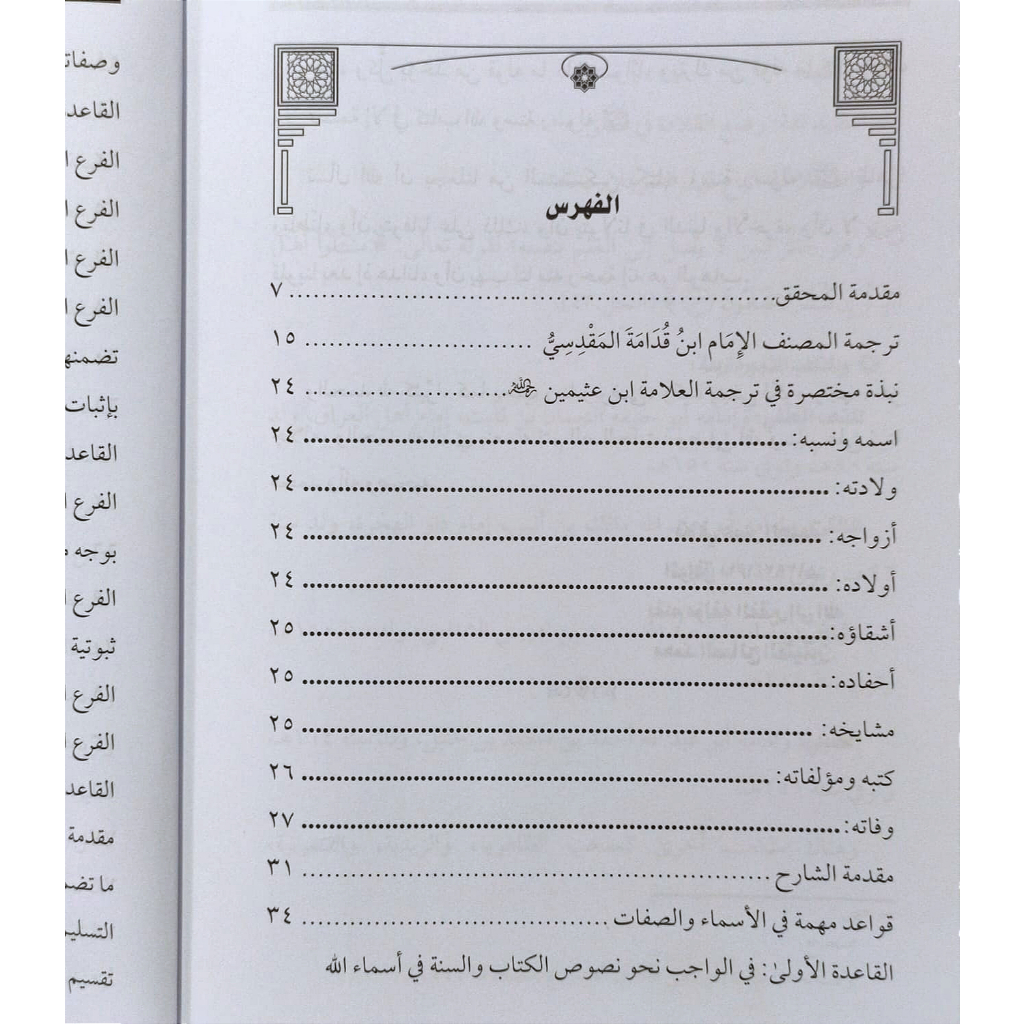 الفهرس
مقدمة المحقق ........ ٧
ترجمة المصنف الإِمَام ابنُ قُدَامَةَ المَقْدِسِيُّ ........ ١٥
نبذة مختصرة في ترجمة العلامة ابن عثيمين رحمه الله ........ ٢٤
اسمه ونسبه: ........ ٢٤
ولادته: ........ ٢٤
أزواجه: ........ ٢٤
أولاده: ........ ٢٤
أشقاؤه: ........ ٢٥
أحفاده: ........ ٢٥
مشايخه: ........ ٢٥
كتبه ومؤلفاته: ........ ٢٦
وفاته: ........ ٢٧
مقدمة الشارح ........ ٣١
قواعد مهمة في الأسماء والصفات ........ ٣٤
القاعدة الأولىٰ: في الواجب نحو نصوص الكتاب والسنة في أسماء الله
الفرع
الفرع
الفرع
الفرع
بإثبات
الفرع
بوجه
الفرع
ثبوتية
الفرع
الفرع
مقدمة
تقسيم